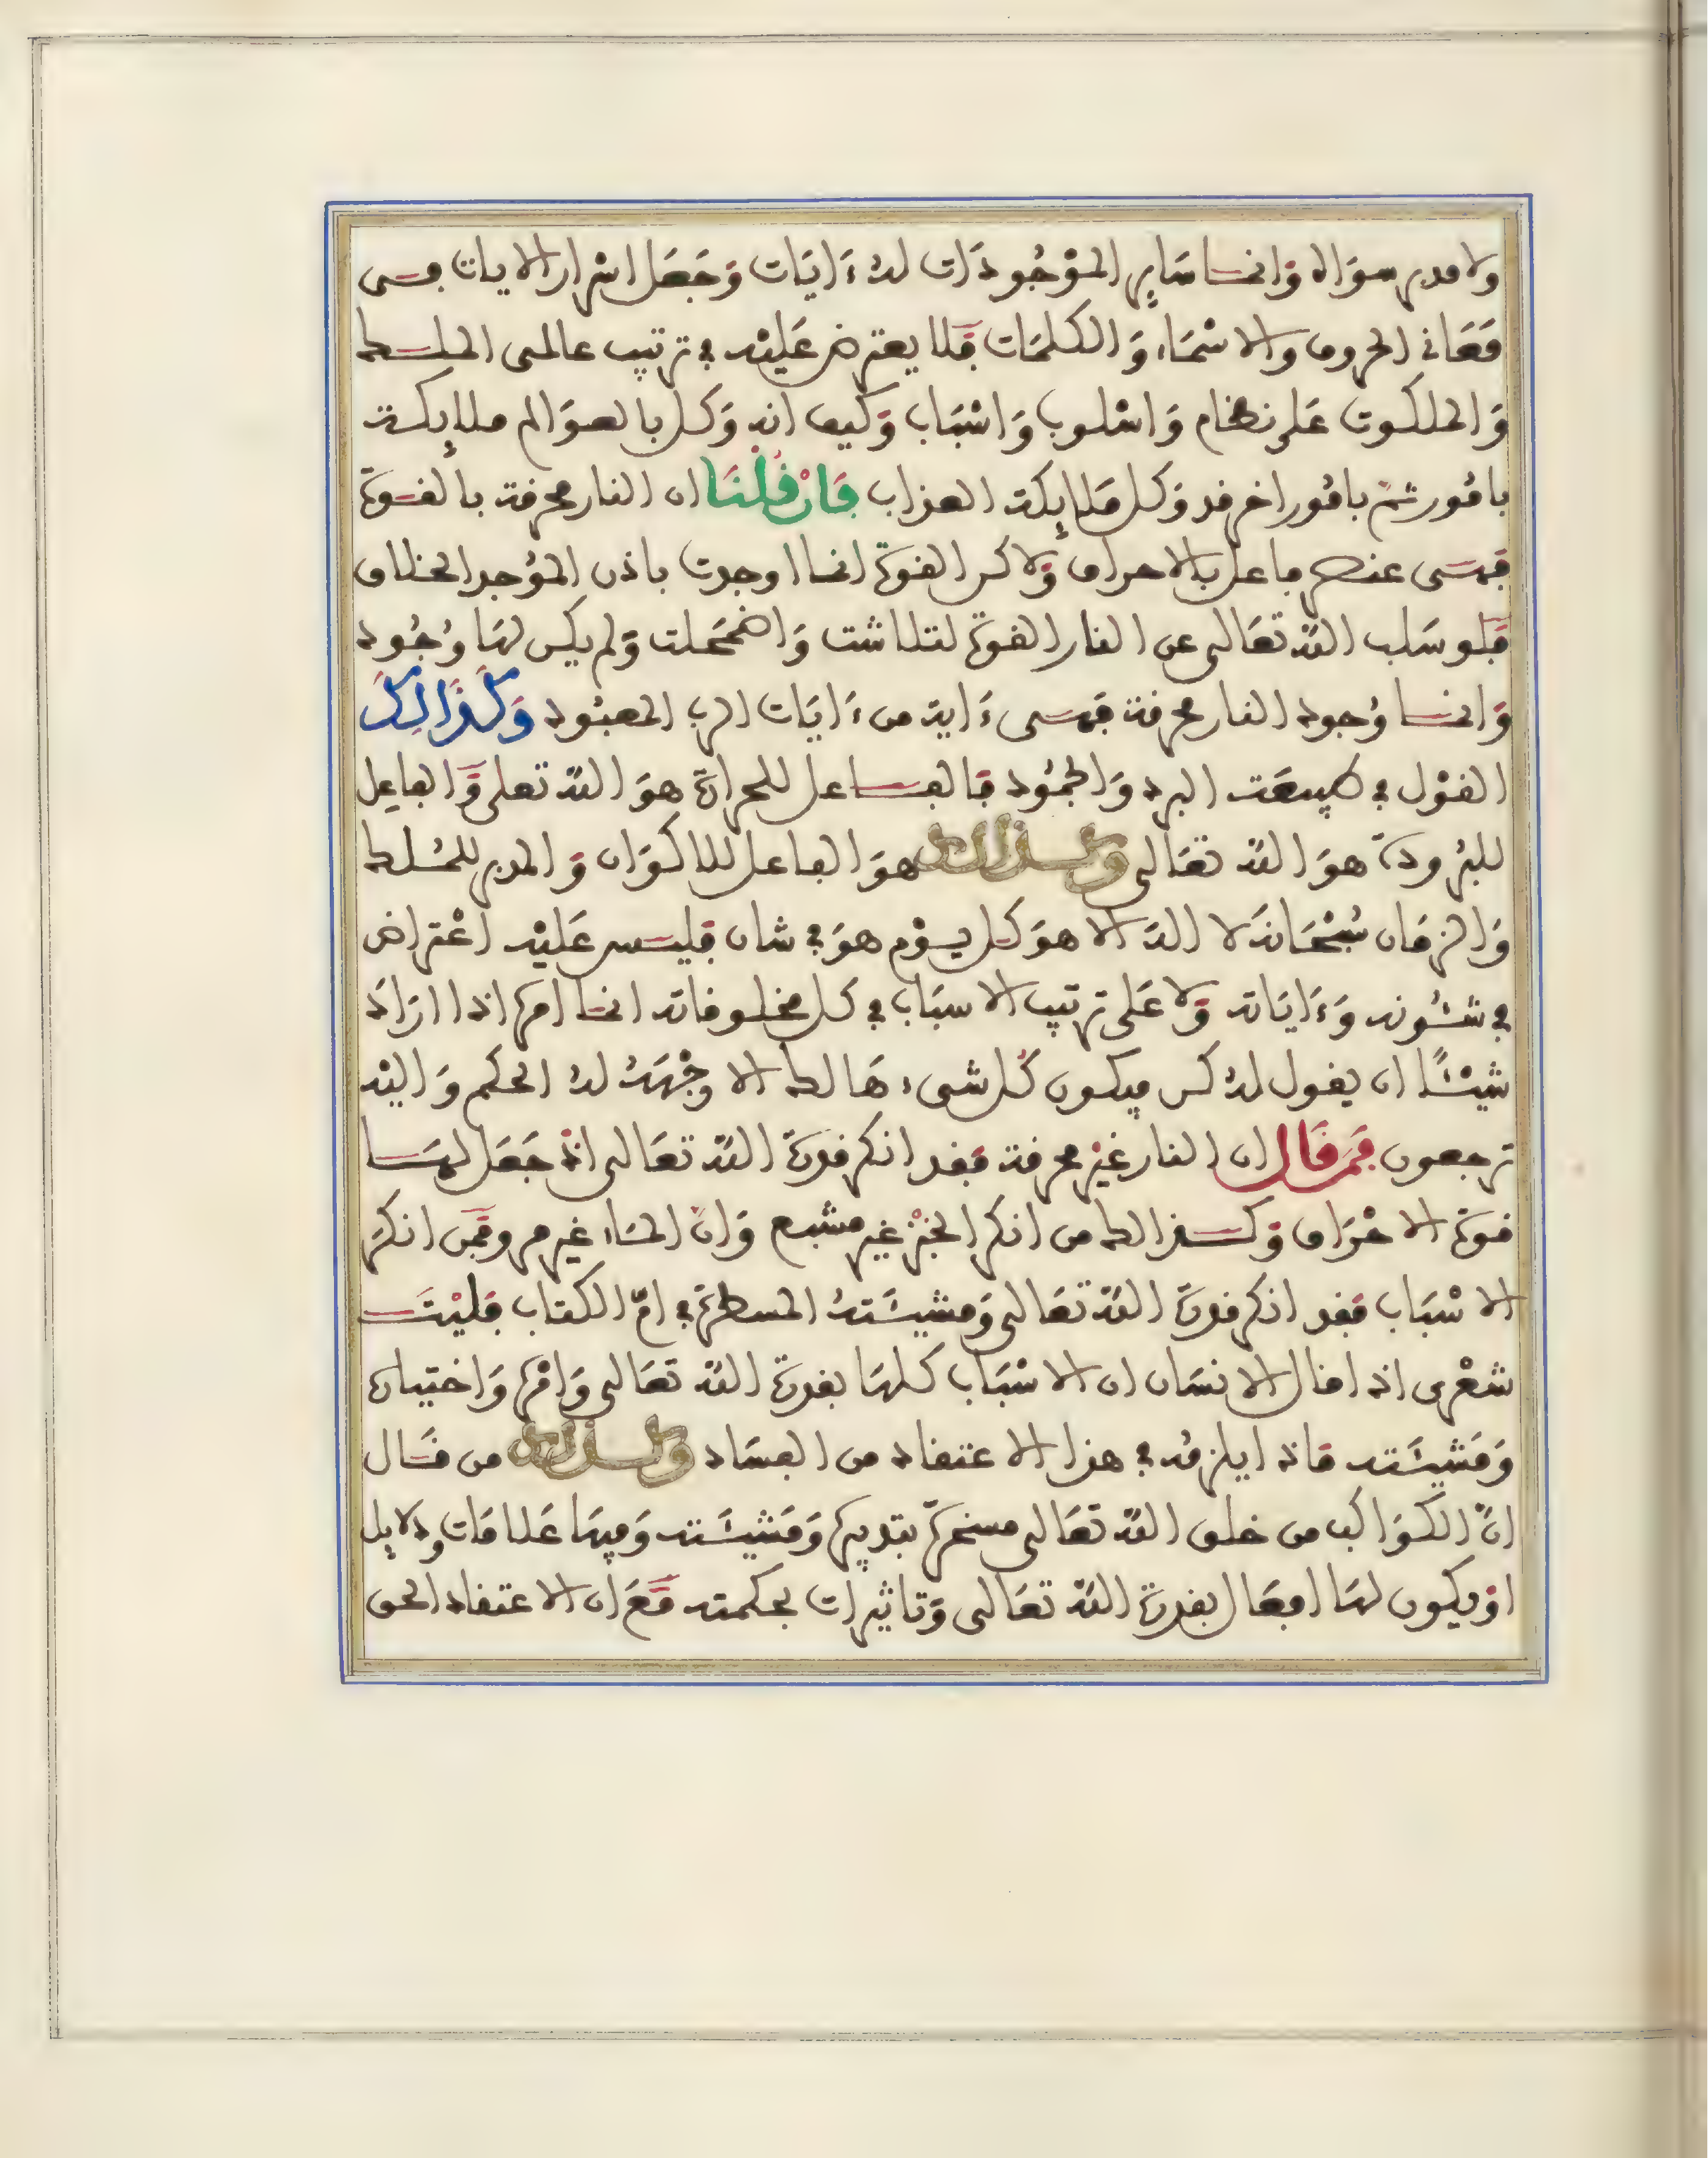 ولا مدبر سواه وَانما سَاير الموْجُودَات لهُ ءَايَات وَجَعَل اسْرار الايات في
مَعَاني الحروف والاسْمَاء وَالكلمَات فَلا يعترض عَليْه في ترتيب عالمي الملك
وَالملكوت عَلى نظام وَاسْلوب وَاسْبَاب وَكيف انه وَكل بالعوَالم ملايكة
بامُور ثمّ بامُور اخر قد وَكل مَلايكة العذاب فَإنْ قُلْنَا ان النار محرقة بالقوة
فَهي عنصر فاعل بالاحراق وَلاكن القوة انما اوجدت باذن المؤجد الخلاق
فَلو سَلب اللّه تعَالى عن النار القوة لتلاشت وَاضمَحَلت وَلم يكن لهَا وُجُود
وَانما وُجود النار محرقة فَهي ءَاية من ءَايَات الرب المعبُود وَكَذَالِكَ
القوْل في طبيعَة البرد وَالجمُود فَالفاعل للحرارة هوَ اللّه تعلى وَالفاعِل
للبرُودة هوَ اللّه تعَالى وكذالك هوَ الفاعل للاكوَان وَالمدبر للمُلك
وَالزمَان سُبْحَانهُ لا اله الا هوَ كل يوْم هوَ في شان فليس عَليْه اعْتراض
في شئُونه وَءَايَاته وَلا عَلى ترتيب الاسبَاب في كل مخلوقاته انما امره اذا ارَادَ
شيْئًا ان يقول لهُ كن فيكون كُل شيء هَالك الا وجْهَهُ لهُ الحكم وَاليْه
ترجعون فَمَن قَال ان النار غيْر محرقة فقد انكر قدرة اللّه تعَالى اذْ جَعَل لهَا
قوة الاحْرَاق وَكذالك من انكر الخبْز غير مشبع وَانّ المَاء غير مرو فَمن انكرَ
الاسْبَاب فقد انكر قدرة اللّه تعَالى وَمشيئَتهُ المسطرة في امّ الكتاب فَليْتَ
شعْري اذا قال الانسَان ان الاسْبَاب كلهَا بقدرة اللّه تعَالى وَامْره وَاختياره
وَمَشيئَته مَاذا يلزمُه في هذا الاعتقاد من الفسَاد وكذالك من قَال
انّ الكوَاكب من خلق اللّه تعَالى مسخرةّ بتدبيره وَمَشيئَته وَفيهَا عَلامَات ودلايل
اوْ يكون لهَا افعَال بقدرة اللّه تعَالى وَتاثيرات بحكمته مَعَ ان الاعتقاد الحق